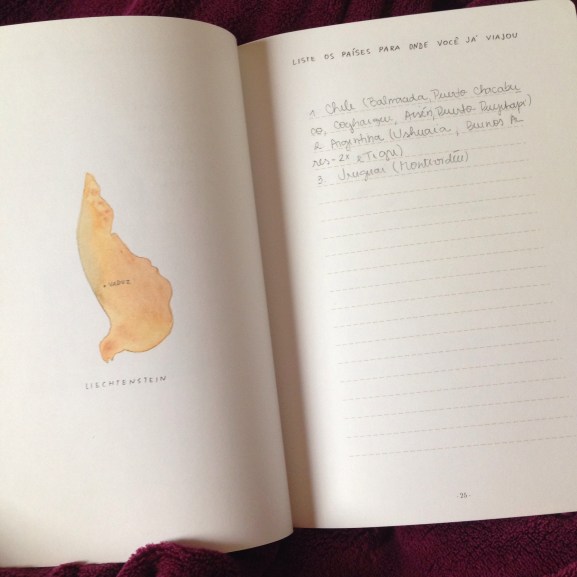 VADUZ
LIECHTENSTEIN
LISTE OS PAÍSES PARA ONDE VOCÊ JÁ VIAJOU
1. Chile (Balmaceda, Puerto Chacabu
co, Coyhaique, Aisén, Puerto Puyhapi)
2. Argentina (Ushuaia, Buenos A
res-2x e Tigre)
3. Uruguai (Montevidéu)
· 25 ·